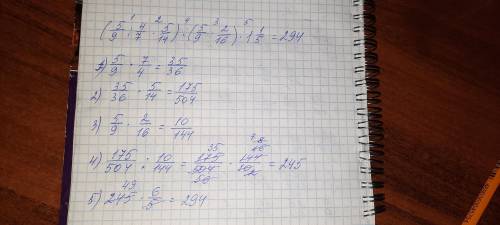 1 2 4 3 5
(5/9 : 4/7 · 5/14) : (5/9 · 2/16) · 1 1/5 = 294
1) 5/9 · 7/4 = 35/36
2) 35/36 · 5/14 = 175/504
3) 5/9 · 2/16 = 10/144
4) 175/504 : 10/144 = 175/504 · 144/10 = 245
5) 245 · 6/5 = 294